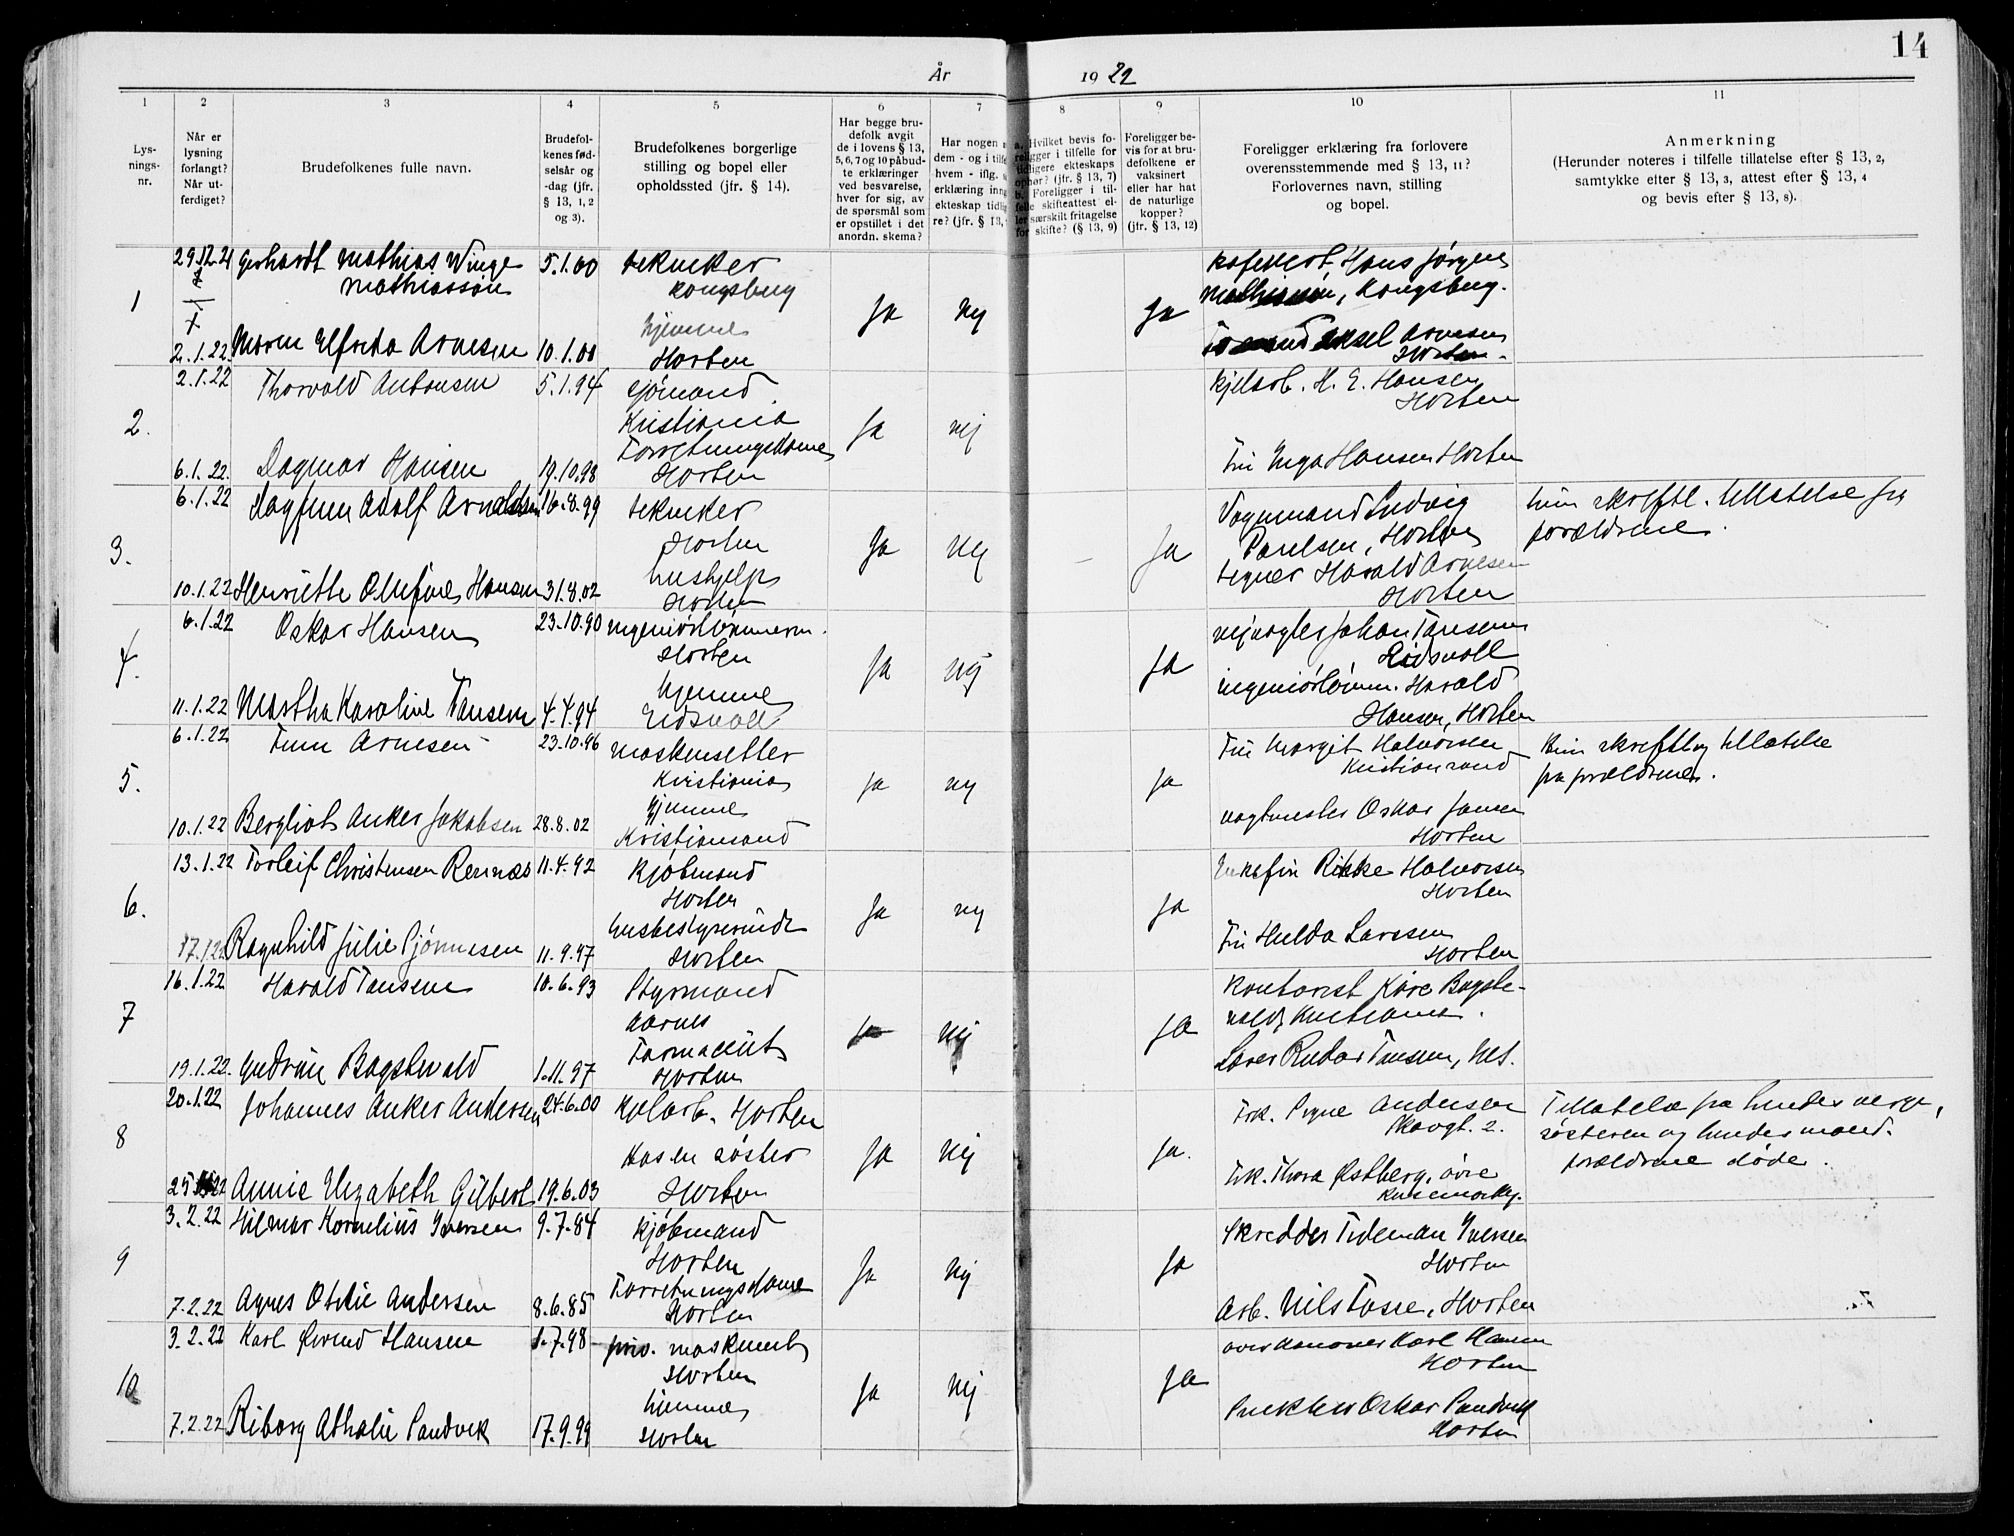 14
År 1922
1
2
3
4
5
6
7
8
9
10
11
Lys-
nings-
nr.
Når er
lysning
forlangt?
Når ut-
ferdiget?
Brudefolkenes fulle navn.
Brudefol-
kenes fød-
selsår og
-dag (jfr.
§ 13, 1, 2
og 3).
Brudefolkenes borgerlige
stilling og bopel eller
opholdssted (jfr. § 14).
Har begge bru-
defolk avgit
de i lovens § 13,
5, 6, 7 og 10 påbud-
te erklæringer
ved besvarelse,
hver for sig, av
de spørsmål som
er opstillet i det
anordn. skema?
Har nogen a
dem - og i tilfe
hvem - iflg.
erklæring inng
ekteskap tidlig
re? (jfr. § 13,
a. Hvilket bevis fo-
religger i tilfelle for
tidligere ekteskaps
ophør? (jfr. § 13, 7)
b. Foreligger i til-
felle skifteattest el-
ler særskilt fritagelse
for skifte? (§ 13, 9)
Foreligger be-
vis for at bru-
defolkene er
vaksinert
eller har hat
de naturlige
kopper?
(jfr. § 13, 12)
Foreligger erklæring fra forlovere
overensstemmende med § 13, 11?
Forlovernes navn, stilling
og bopel.
Anmerkning
(Herunder noteres i tilfelle tillatelse efter § 13, 2,
samtykke efter § 13, 3, attest efter § 13, 4
og bevis efter § 13, 8).
1
29.12.21 Gerhardt Mathias Winge 5.1.00 tekniker
Mathiassøn Kongsberg
Ja Nej Ja
hjemme
2.1.22. Maren Elfrida Arnesen 10.1.00 Horten
Hans Jørgen
Kongsberg.
Aksel Arnesen
Horten.
2.
2.1.22 Thorvald Antonsen 5.1.94 sjömand
Kristiania
Ja nej
Forretningsdame
6.1.22. Dagmar Hansen 19.10.98 Horten
Kjelarb. H. E. Hansen
Horten
Fru Inga Hansen Horten
3.
6.1.22 Dagfinn Adolf 16.8.99 tekniker
Horten
Ja Nej Ja
hushjelp
10.1.22 Henriette Olufine Hansen 31.8.02 Horten
Vognmand Ludvig
Paulsen, Horten
tegner Harald Arnesen
Horten
hun skriftl. tillatelse fra
forældrene.
4.
6.1.22 Oskar Hansen 23.10.90
Horten
Ja Nej Ja
hjemme
11.1.22 Martha Karoline 4.4.94 Eidsvoll
Johan
Eidsvoll
Harald
Hansen, Horten
5.
6.1.22 Finn Arnesen 23.10.96 maskinsetter
Kristiania
Ja nej Ja
hjemme
10.1.22 Bergliot Anker Jakobsen 28.8.02 Kristiansand
Fru Margit Halvorsen
Kristiansand
vagtmester Oskar Jansen
Horten
hun skriftlig tillatelse
fra forældrene.
6.
13.1.22 Torleif Christensen Rennæs 11.4.92 Kjøbmand
Horten
Ja nej Ja
husbestyrerinde
17.1.22 Ragnhild Julie Bjørnnesen 11.9.97 Horten
Enkefru Rikke Halvorsen
Horten
Fru Hulda Larssen
Horten
7
16.1.22 Harald 10.6.93 Styrmand
Aarnes
Ja Nej Ja
Farmaceut
19.1.22. Gudrun Bagstevold 1.11.97 Horten
Kontorist Kåre Bagste-
vold, Kristiania.
8
20.1.22 Johannes Anker Andersen 24.6.00 Kjelarb. Horten
Ja Nej Ja.
Hos en søster
25.1.22 Annie Elizabeth Gilbert 19.6.03 Horten
Frk. Signe Andersen
Skovgt. 2.
Frk. Thora Østberg, øvre
Tillatelse fra hendes verge,
søsteren og hendes mand.
forældrene døde.
9
3.2.22 Hilmar Kornelius Iversen 9.7.84 Kjøbmand
Horten
Ja Nej Ja
Forretningsdame
7.2.22 Agnes Otilie Andersen 8.6.85 Horten
Skredder Tideman Iversen
Horten
Arb. Nils Horten
10
3.2.22 Karl Øivind Hansen 1.7.98 priv. maskinist
Horten
Ja Nej Ja
hjemme
7.2.22 Riborg Athalie Sandvik 17.9.99 Horten
overkanoner Karl Hansen
Horten
Snekker Oskar Sandvik
Horten